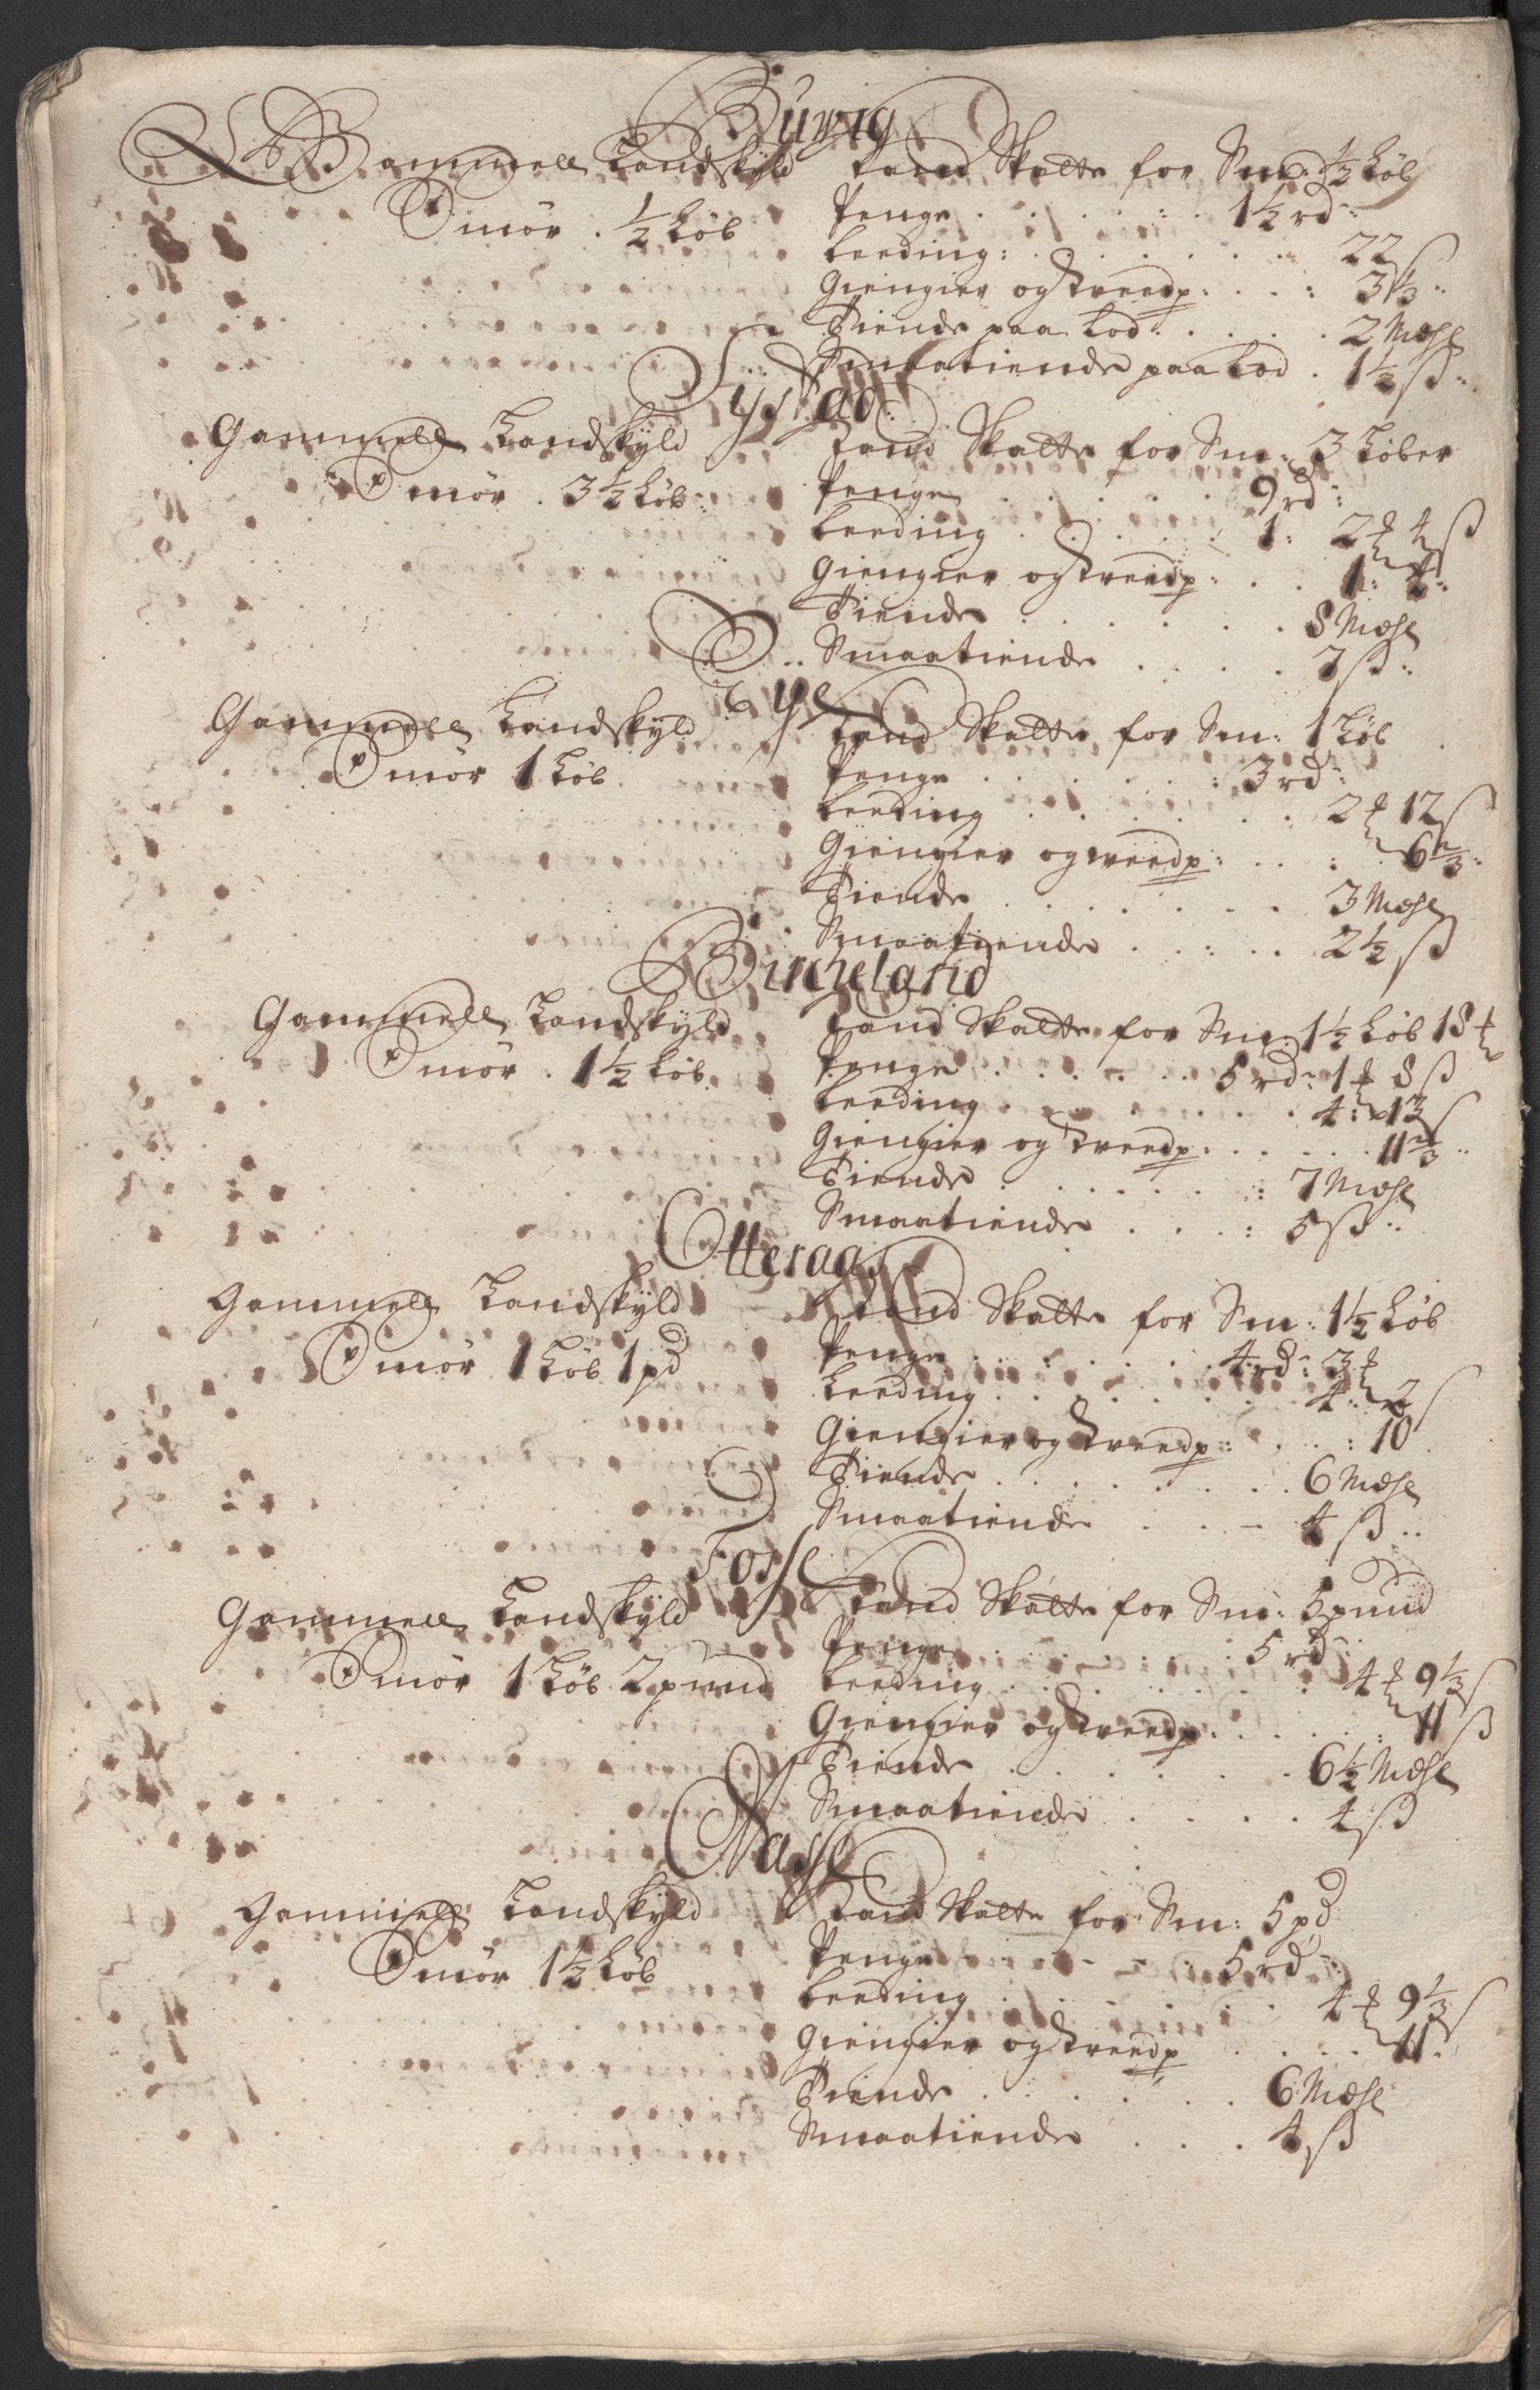 Buwig
Gammell Landskyld
Smör . ½ Løb
Land Skatte for Sm: ½ Løb
Penge . . . . . 1½ rd:
Leeding: . . . . . 22 ß
Giengier og Tveedp: . . . 3⅓ ..
Tiende paa Lod . . . . 2 Mæhl
Smaatiende paa Lod . 1½ ß ..
Systad
Gammell Landskyld
Smör . 3½ Løb
Land Skatte for Sm: 3 Løber
Penge . . . . . 9 rd:
Leeding . . . . . 1: 2 ₰ 4 ß
Giengier og Tveedp: . . . 1: 2:
Tiende . . . . . 8 Mæhl
Smaatiende . . . . 7 ß:
Tye
Gammell Landskyld
Smör 1 Løb
Land Skatte for Sm: 1 Løb
Penge . . . . . : 3 rd:
Leeding . . . . . 2 ₰ 12 ß
Giengier og tveedp: . . . : . 6⅔:
Tiende . . . . . 3 Mæhl
Smaatiende . . : . . 2½ ß
Bircheland
Gammell Landskyld
Smör . 1½ Løb
Land Skatte for Sm: 1½ Løb 18 ₰
Penge . . . . . 5 rd: 1 ₰ 8 ß
Leeding . . . . . 4: 13 ß
Giengier og Tveedp . . . . . 11⅔ ..
Tiende . . . . . : 7 Mæhl
Smaatiende . . . : 5 ß ..
Otteraas
Gammell Landskyld
Smör 1 Løb 1 pd
Land Skatte for Sm: 1½ Løb
Penge . . . . . 4 rd: 3 ₰
Leeding . . . . . 4: 2 ß
Giengier og Tveedp: . . . : 10
Tiende . . . . . 6 Mæhl
Smaatiende . . - 4 ß ..
Fosse
Gammell Landskyld
Smör 1 Løb 2 pund
Land Skatte for Sm: 5 pund
Penge . . . . . 5 rd:
Leeding . . . . . 4 ₰ 9⅓ ß
Giengier og Tveedp: . . . . : 11 ß
Tiende . . . . . 6½ Mæhl
Smaatiende . . . . 4 ß
Aasse
Gammell Landskyld
Smör 1½ Løb
Land Skatte for Sm: 5 pd
Penge . . . . . 5 rd:
Leeding . . . . . 4 ₰ 9⅓ ß
Giengier og Tveedp . . . . 11.
Tiende . . . . . 6 Mæhl
Smaatiende . . . 4 ß